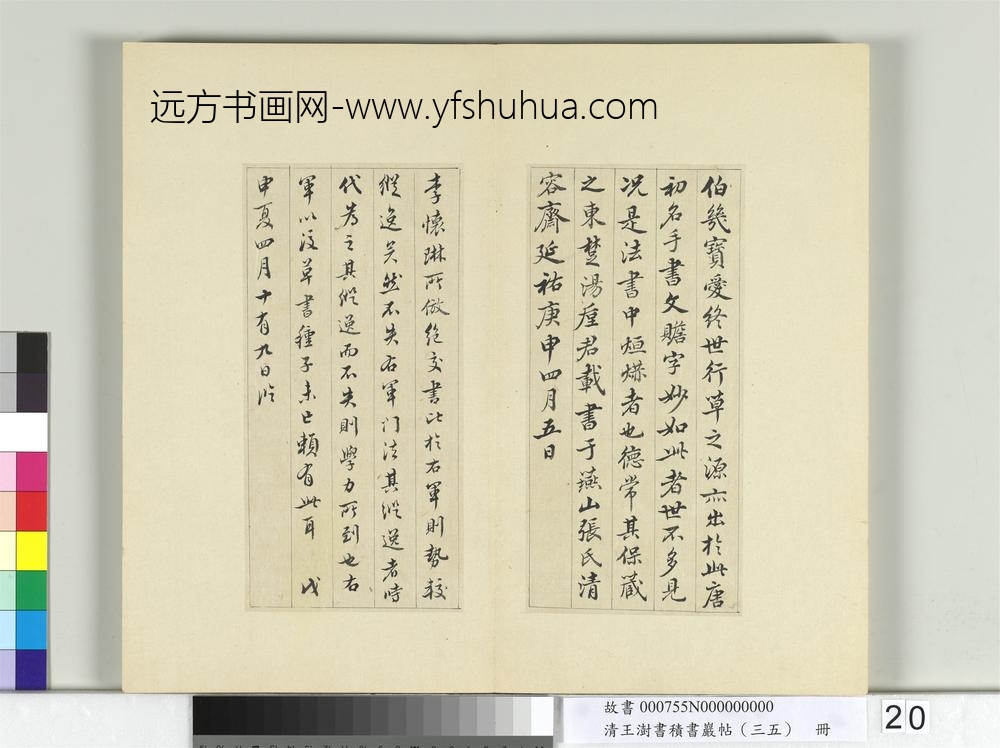 远方书画网-www.yfshuhua.com
伯幾寶愛終世行草之源亦出於此唐
初名手書文贍字妙如此者世不多見
况是法書中烜爀者也德常其保藏
之東楚湯垕君載書于燕山張氏清
容齋延祐庚申四月五日
李懷琳所倣絶交書比於右軍則勢較
縱逸矣然不失右軍门法其縱逸者時
代為之其縱逸而不失則學力所到也右
軍以後草書種子未亡賴有此耳 戊
申夏四月十有九日
故書 000755N000000000
清王澍書積書巖帖（三五） 冊
20